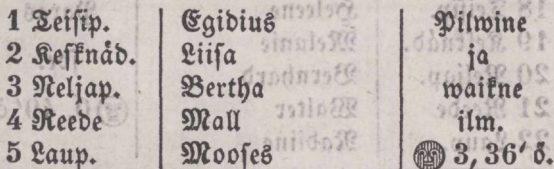 1 Teiſip. Egidius Pilwine
2 Keſknäd. Liiſa ja
3 Neljap. Bertha waikne
4 Reede Mall ilm.
5 Laup. Mooſes 3, 36′ õ.